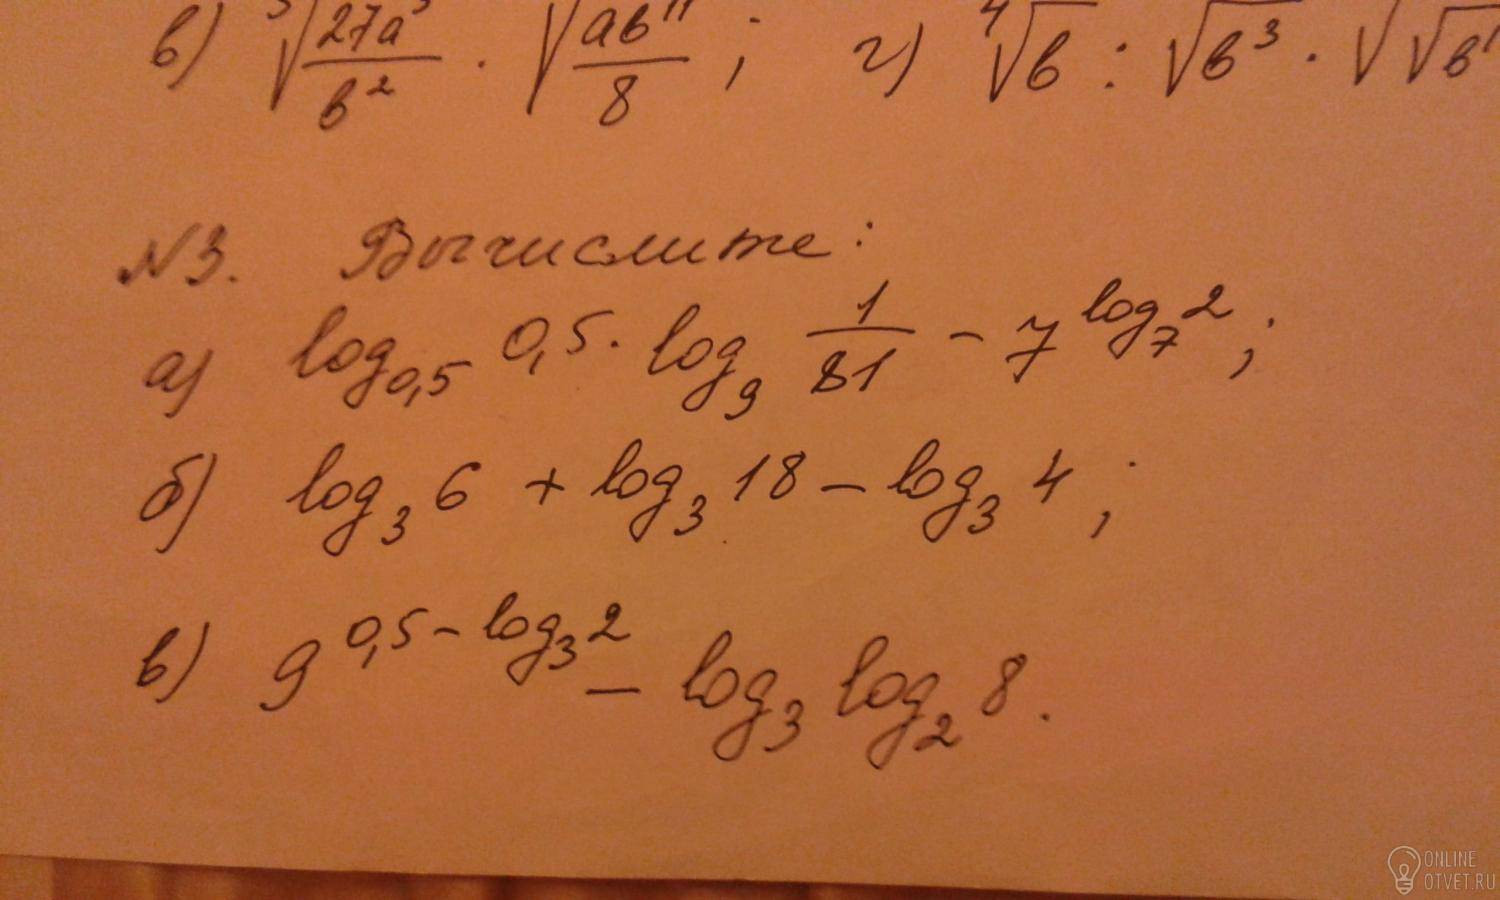 в) ∛(27a³/в²) · √(aв¹¹/8) ; г) ⁴√в : √в³ · √√в¹
№3. Вычислите:
а) log₀,₅ 0,5 · log₉ 1/81 − 7^(log₇ 2) ;
б) log₃ 6 + log₃ 18 − log₃ 4 ;
в) 9^(0,5 − log₃ 2) − log₃ log₂ 8 .
ONLINE
OTVET.RU